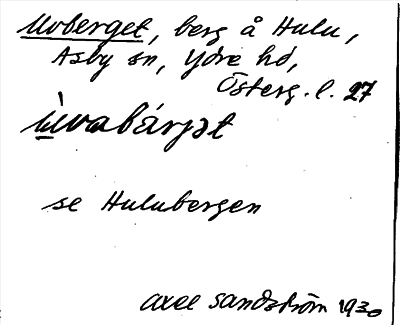 Uvberget, berg å Hulu,
Asby sn, Ydre hd,
Österg. l. 27
ùvabárjət
se Hulubergen
Axel Sandström 1930